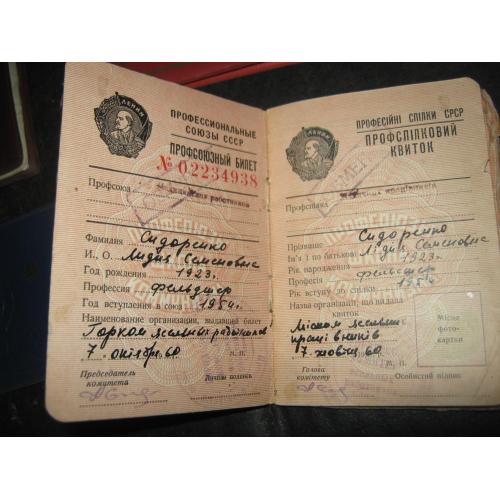 ЛЕНИН
ПРОФЕССИОНАЛЬНЫЕ
СОЮЗЫ СССР
ПРОФСОЮЗНЫЙ БИЛЕТ
№ 02234938
Профсоюз работников
Фамилия Сидоренко
И., О. Лидия Семеновна
Год рождения 1923 г.
Профессия фельдшер
Год вступления в союз 1954 г.
Наименование организации, выдавшей билет
Горком работников
7 октября 60
М. П.
Председатель
комитета
Личная подпись
ЛЕНИН
ПРОФЕСІЙНІ СПІЛКИ СРСР
ПРОФСПІЛКОВИЙ
КВИТОК
Профспілка
Прізвище Сидоренко
Ім'я і по батькові Лідія Семеновна
Рік народження 1923 г.
Професія фельдшер
Рік вступу до спілки 1954
Назва організації, що видала
квиток
Міськом
працівників
7 жовтня 60
Місце
фото-
картки
М. П.
Голова
комітету
Особистий підпис